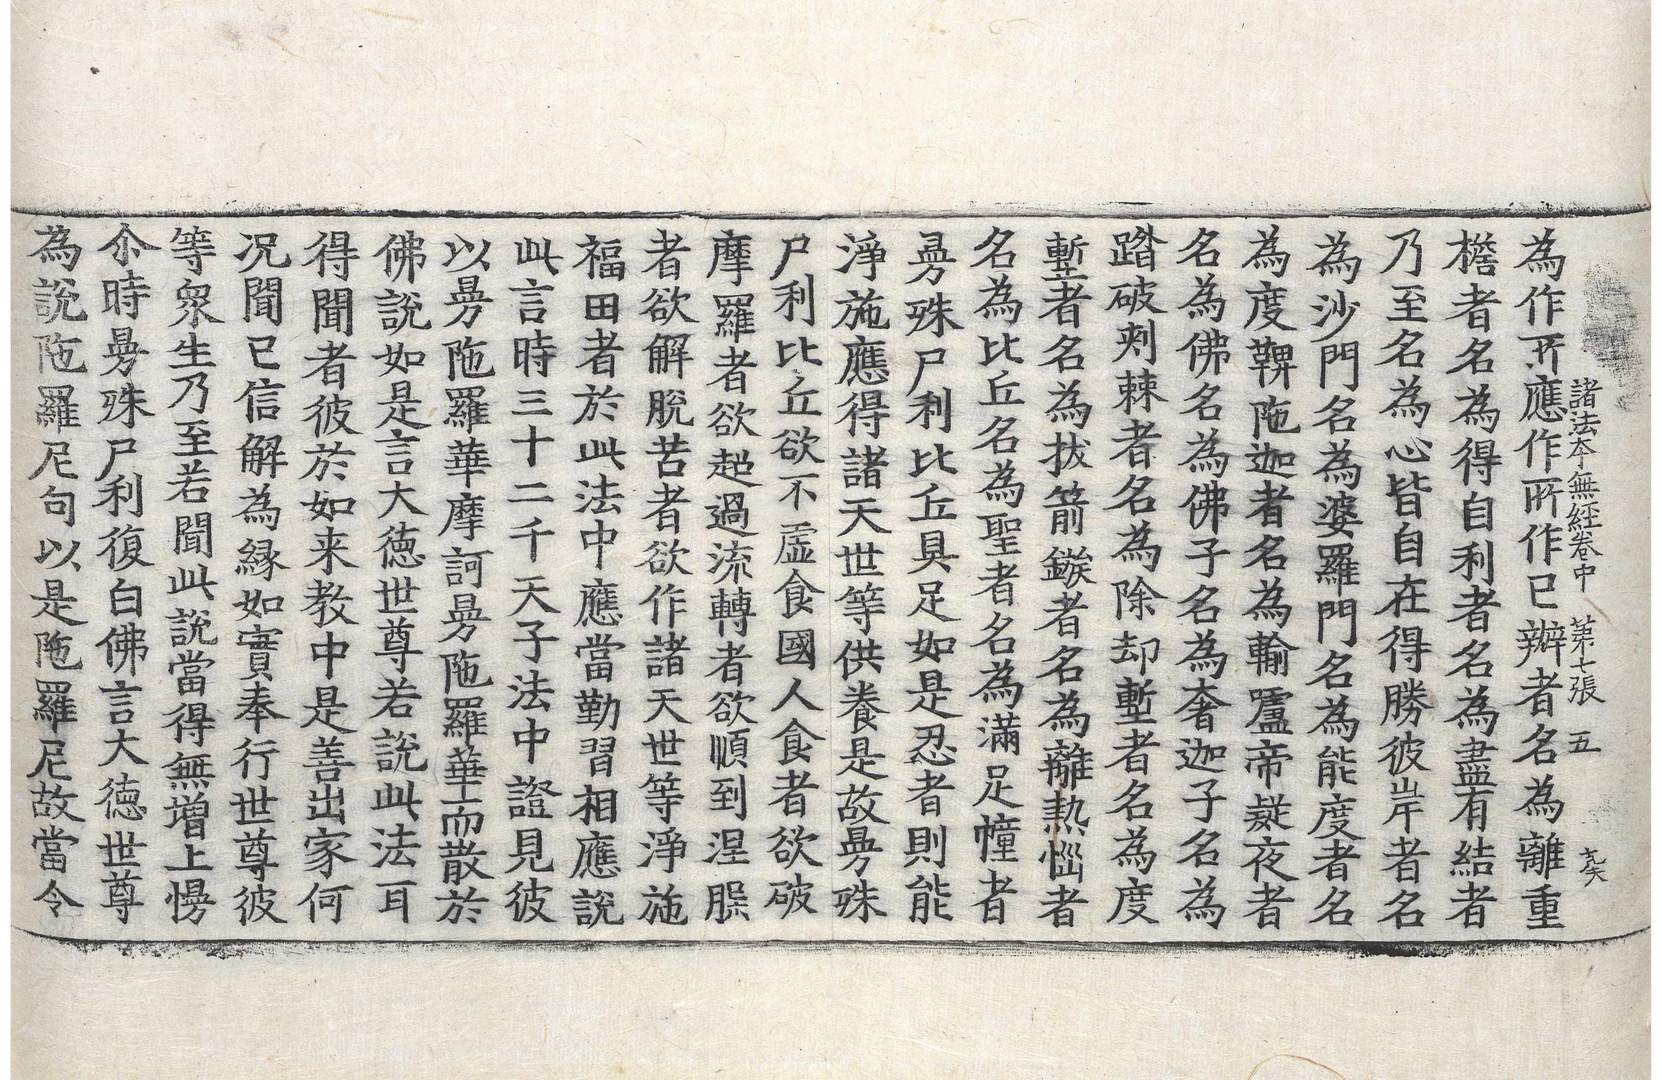 諸法本無經卷中 第七張 五
為作所應作所作已辦者名為離重
檐者名為得自利者名為盡有結者
乃至名為心皆自在得勝彼岸者名
為沙門名為婆羅門名為能度者名
為度鞞陁迦者名為輸盧帝疑夜者
名為佛名為佛子名為奢迦子名為
踏破刺棘者名為除却塹者名為度
塹者名為拔箭鏃者名為離熱惱者
名為比丘名為聖者名為滿足幢者
曼殊尸利比丘具足如是忍者則能
淨施應得諸天世等供養是故曼殊
尸利比丘欲不虛食國人食者欲破
摩羅者欲超過流轉者欲順到涅槃
者欲解脫苦者欲作諸天世等淨施
福田者於此法中應當勤習相應說
此言時三十二千天子法中證見彼
以曼陁羅華摩訶曼陁羅華而散於
佛說如是言大德世尊若說此法耳
得聞者彼於如来教中是善出家何
况聞已信解為緣如實奉行世尊彼
等眾生乃至若聞此說當得無增上慢
尒時曼殊尸利復白佛言大德世尊
為說陁羅尼句以是陁羅尼故當令